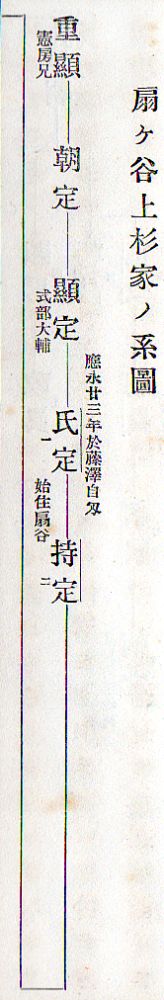 扇ヶ谷上杉家ノ系圖
應永廿三年於藤澤自刄
重顯 朝定 顯定 氏定 持定
憲房兄 式部大輔 一 始住扇谷 二